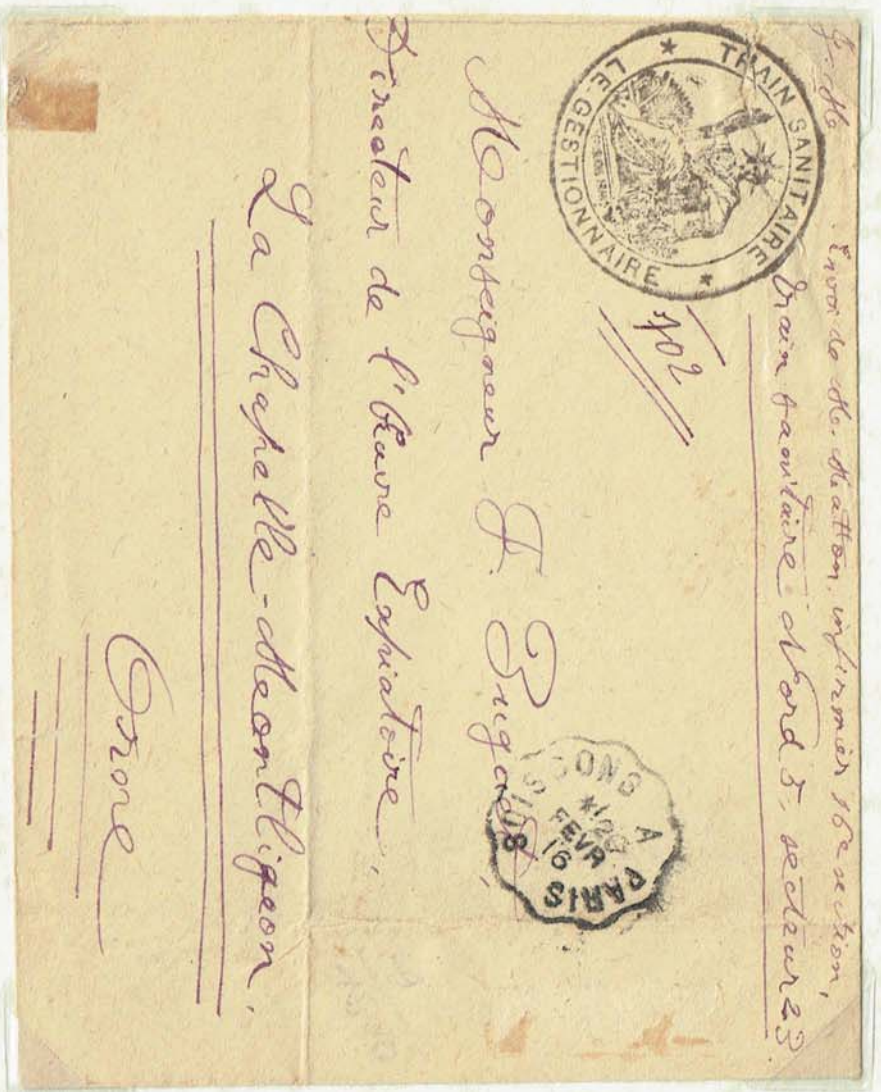 F. M.
Envoi de M. Matton, infirmier 16e section,
Train sanitaire Nord 5, secteur 23.
★ TRAIN SANITAIRE ★
LE GESTIONNAIRE
102
Monseigneur F. Buguet,
Directeur de l'Œuvre Expiatoire,
La Chapelle-Montligeon,
Orne
SOISSONS A PARIS
FEVR
16